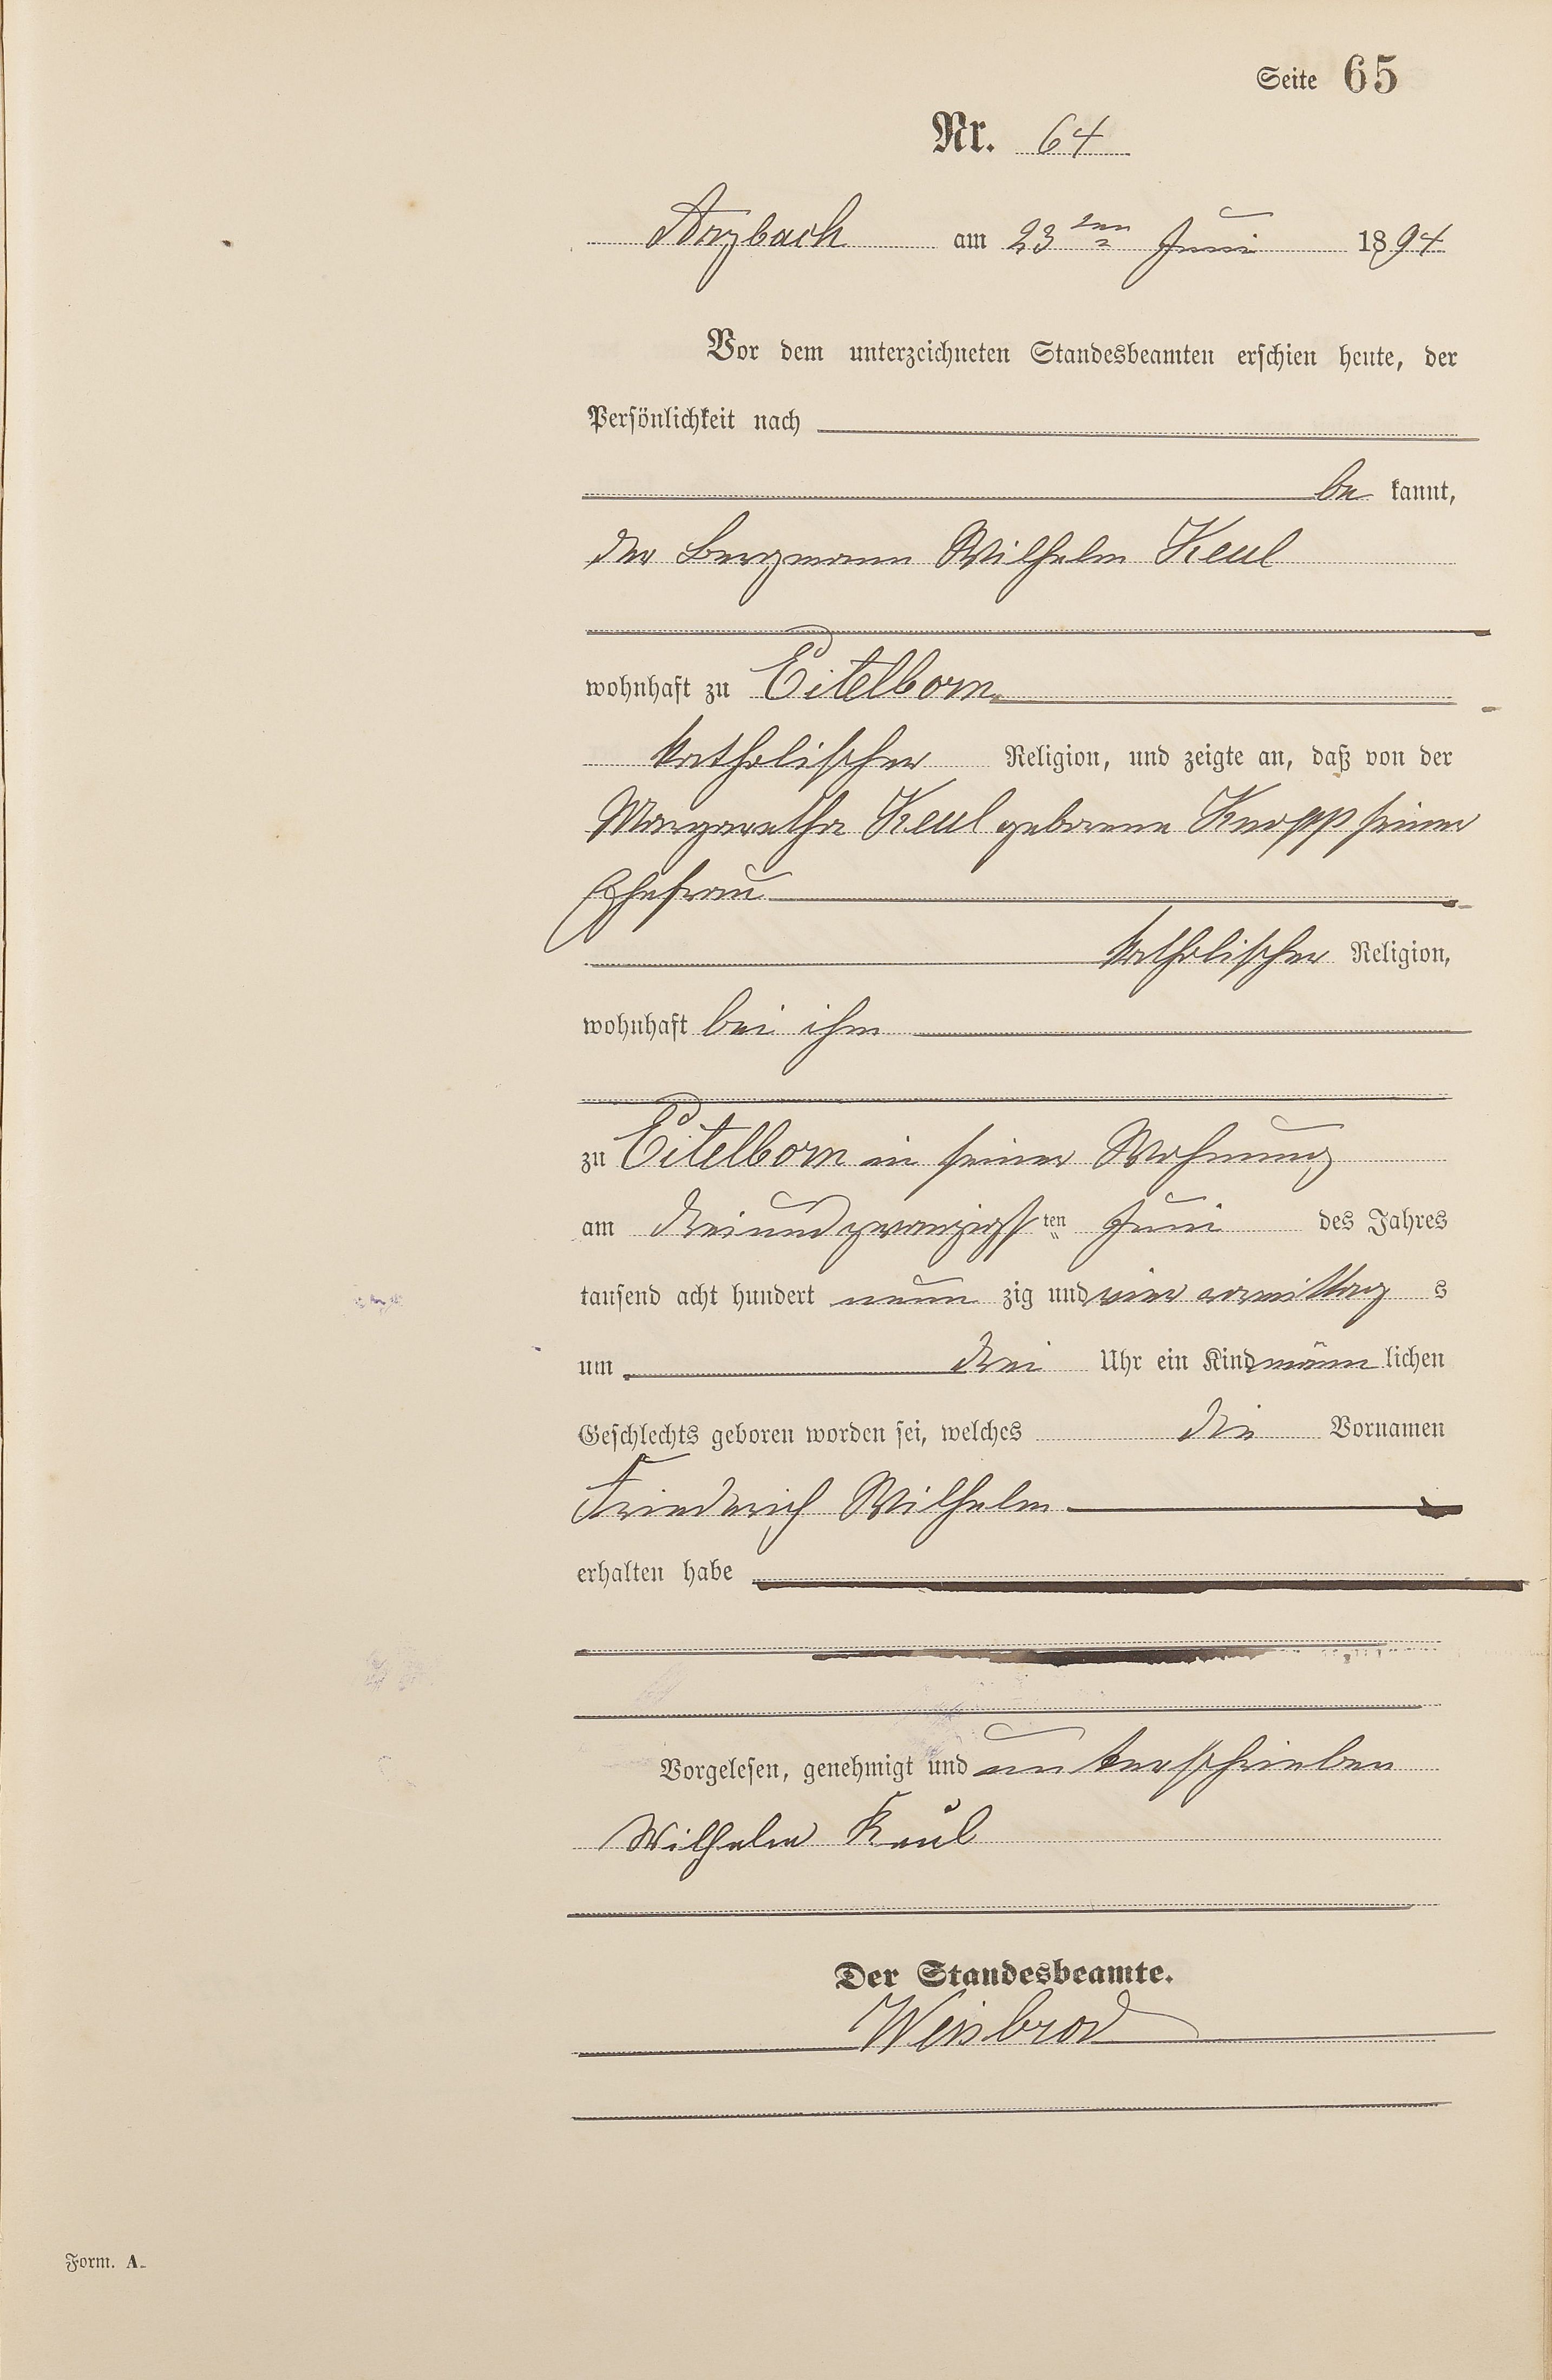 Seite 65
Nr. 64
Arzbach am 23ten Juni 1894
Vor dem unterzeichneten Standesbeamten erschien heute, der
Persönlichkeit nach
be kannt,
der Bergmann Wilhelm Keul
wohnhaft zu Eitelborn
katholischer Religion, und zeigte an, daß von der
Margaretha Keul geborene Knopp seiner
Ehefrau
katholischer Religion,
wohnhaft bei ihm
zu Eitelborn in seiner Wohnung
am dreiundzwanzigsten Juni des Jahres
tausend acht hundert neun zig und vier vormittag s
um drei Uhr ein Kind männ lichen
Geschlechts geboren worden sei, welches die Vornamen
Friedrich Wilhelm
erhalten habe
Vorgelesen, genehmigt und unterschrieben
Wilhelm Keul
Der Standesbeamte.
Weisbrod
Form. A.